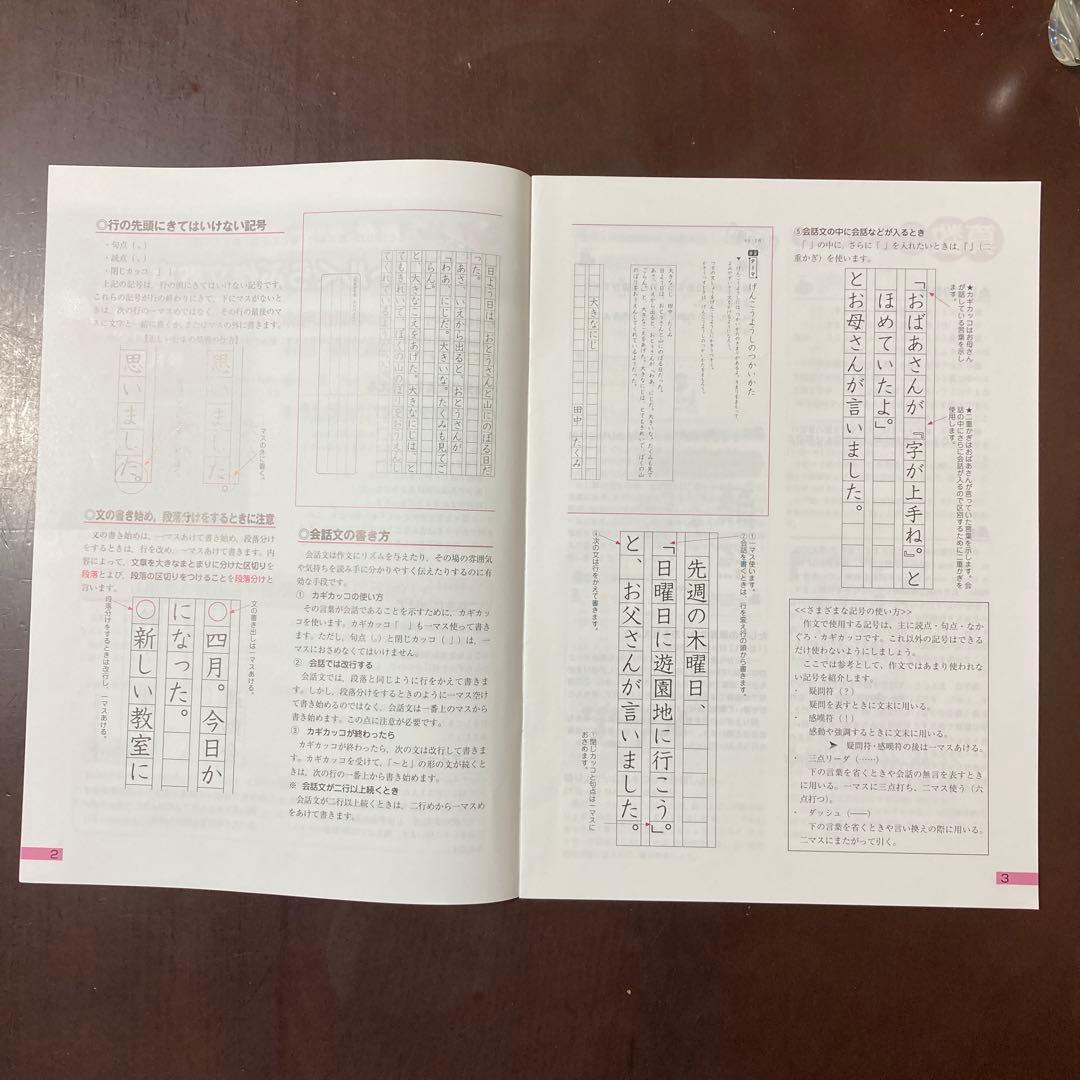 ◎行の先頭にきてはいけない記号
・句点（。）
・読点（、）
・閉じカッコ 」
上記の記号は、行の頭にきてはいけない記号です。
これらの記号が行の終わりにきて、下にマスがないと
きは、次の行の一マスめではなく、その行の最後のマ
スに文字と一緒に書くか、またはマスの外に書きます。
思いました。
思
ました。
マスの外に書く。
◎文の書き始め，段落分けをするときに注意
文の書き始めは、一マスあけて書き始め、段落分け
をするときは、行を改め、一マスあけて書きます。内
容によって、文章を大きなまとまりに分けた区切りを
段落とよび、段落の区切りをつけることを段落分けと
言います。
文の書き出しは一マスあける。
○四月。今日か
になった。
○新しい教室に
段落分けをするときは改行し、一マスあける。
日よう日は、おとうさんと山にのぼる日だ
った。
あさ、いえから出ると、おとうさんが
「わあ、にじだ。大きいな。たくみも見てご
らん」
と、大きなこえをあげた。大きなにじは、と
てもきれいで、ぼくの山のぼりをおうえんし
てくれているようだった。
◎会話文の書き方
会話文は作文にリズムを与えたり、その場の雰囲気
や気持ちを読み手に分かりやすく伝えたりするのに有
効な手段です。
① カギカッコの使い方
その言葉が会話であることを示すために、カギカッ
コを使います。カギカッコ「 」も一マス使って書き
ます。ただし、句点（。）と閉じカッコ（ 」）は、一
マスにおさめなくてはいけません。
② 会話では改行する
会話文では、段落と同じように行をかえて書きま
す。しかし、段落分けをするときのように一マス空け
て書き始めるのではなく、会話文は一番上のマスから
書き始めます。この点に注意が必要です。
③ カギカッコが終わったら
カギカッコが終わったら、次の文は改行して書きま
す。カギカッコを受けて、「～と」の形の文が続くと
きは、次の行の一番上から書き始めます。
※ 会話文が二行以上続くとき
会話文が二行以上続くときは、二行めから一マスめ
をあけて書きます。
2
テーマ
げんこうようしのつかいかた
大きなにじ 田中 たくみ
日よう日は、おとうさんと山にのぼる日だった。
あさ、いえから出ると、おとうさんが「わあ、にじだ。大きいな。たくみも見て
ごらん」と、大きなこえをあげた。大きなにじは、とてもきれいで、ぼくの山
のぼりをおうえんしてくれているようだった。
大きなにじ
田中 たくみ
①一マス使います。
②会話を書くときは、行を変え行の頭から書きます。
先週の木曜日、
「日曜日に遊園地に行こう。」
と、お父さんが言いました。
④次の文は行をかえて書きます。
①閉じカッコと句点は一マスに
おさめます。
⑤会話文の中に会話などが入るとき
「 」の中に、さらに「 」を入れたいときは、『』（二
重かぎ）を使います。
★カギカッコはお母さん
が話している言葉を示し
ます。
★二重かぎはおばあさんが言っていた言葉を示します。会
話の中にさらに会話が入るので区別するために二重かぎを
使用します。
「おばあさんが『字が上手ね。』と
ほめていたよ。」
とお母さんが言いました。
<<さまざまな記号の使い方>>
作文で使用する記号は、主に読点・句点・なか
ぐろ・カギカッコです。これ以外の記号はできる
だけ使わないようにしましょう。
ここでは参考として、作文ではあまり使われな
い記号を紹介します。
・ 疑問符（？）
疑問を表すときに文末に用いる。
・ 感嘆符（！）
感動や強調するときに文末に用いる。
➤ 疑問符・感嘆符の後は一マスあける。
・ 三点リーダ（……）
下の言葉を省くときや会話の無言を表すとき
に用いる。一マスに三点打ち、二マス使う（六
点打つ）。
・ ダッシュ（――）
下の言葉を省くときや言い換えの際に用いる。
二マスにまたがって引く。
3